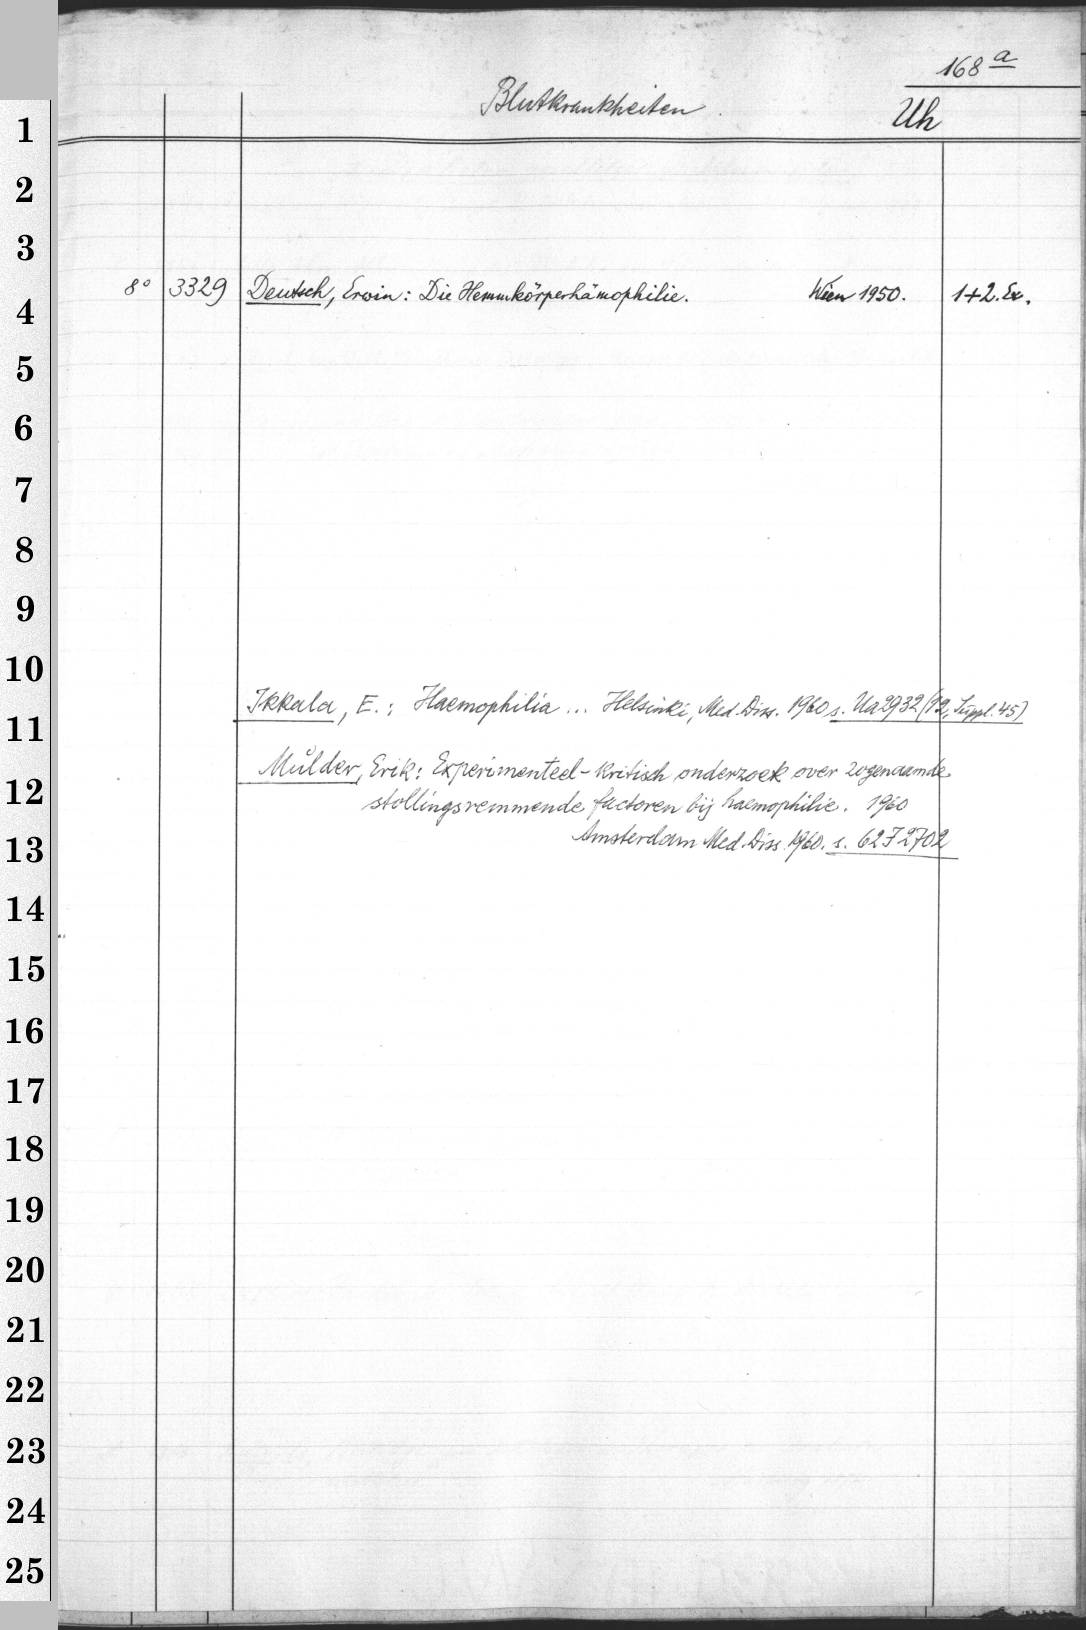 168a
Blutkrankheiten.
Uh
1
2
3
8° 3329 Deutsch, Erwin: Die Hemmkörperhämophilie. Wien 1950. 1+2. Ex.
4
5
6
7
8
9
10
Ikkala, E.: Haemophilia ... Helsinki, Med. Diss. 1960 s. Ua2932 (12, Suppl. 45)
11
Mulder, Erik: Experimenteel-kritisch onderzoek over zogenaamde
12
stollingsremmende factoren bij haemophilie. 1960
Amsterdam Med. Diss. 1960. s. 62J2702
13
14
15
16
17
18
19
20
21
22
23
24
25